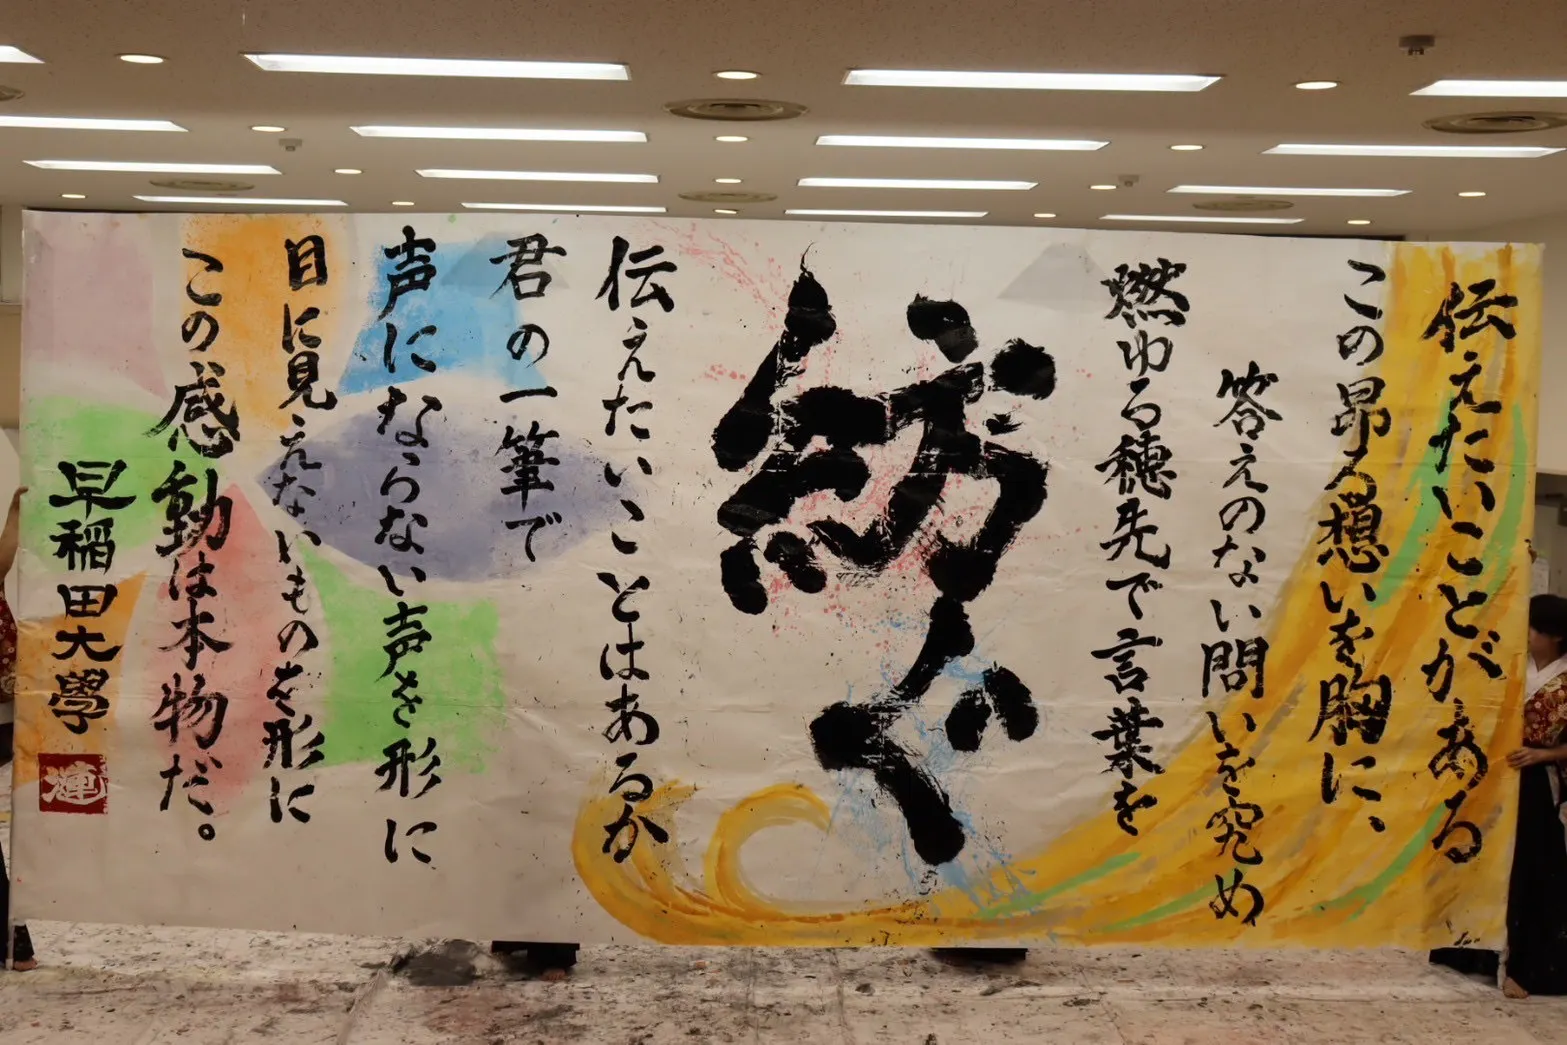 伝えたいことがある
この昂る想いを胸に、
答えのない問いを究め
燃ゆる穂先で言葉を
紡ぐ
伝えたいことはあるか
君の一筆で
声にならない声を形に
目に見えないものを形に
この感動は本物だ。
早稲田大學